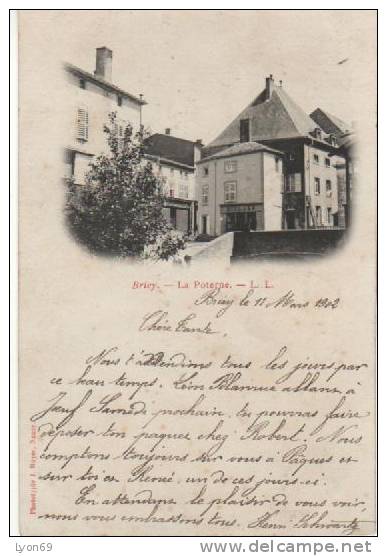 Briey. — La Poterne. — L. L.
Briey le 11 Mars 1902
Chère Tante,
Nous t'attendions tous les jours par
ce beau temps. Léon allant à
Jœuf Samedi prochain, tu pourras faire
déposer ton paquet chez Robert. Nous
comptons toujours sur vous à Pâques et
sur toi et René, un de ces jours-ci.
En attendant le plaisir de vous voir,
nous vous embrassons tous. Henri Schwartz
Phototypie J. Royer, Nancy
© lyon69
www.delcampe.net